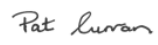 Pat Curran